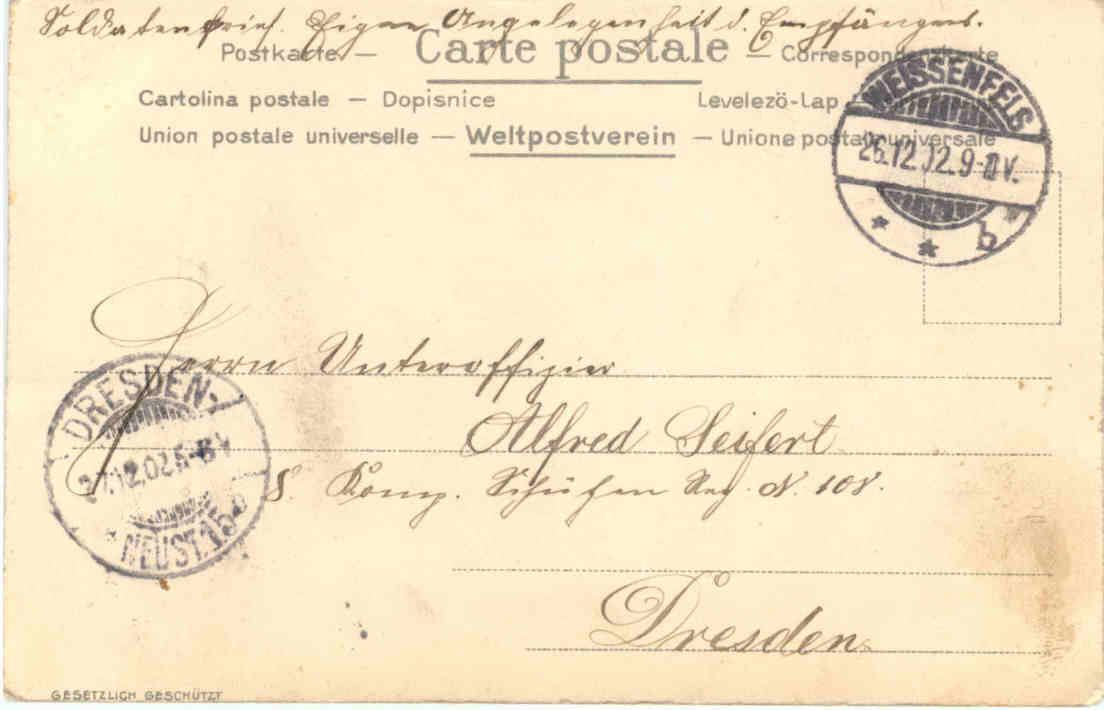 Soldatenbrief. Eigene Angelegenheit d. Empfängers.
Postkarte — Carte postale — Correspondenzkarte
Cartolina postale — Dopisnice Levelezö-Lap
Union postale universelle — Weltpostverein — Unione postale universale
WEISSENFELS
26.12.02.9-11V.
* * b *
Herrn Unteroffizier
Alfred Seifert
8. Komp. Schützen Reg. N. 108.
Dresden
DRESDEN-
27.12.02.5-6V
* NEUST. 15
GESETZLICH GESCHÜTZT